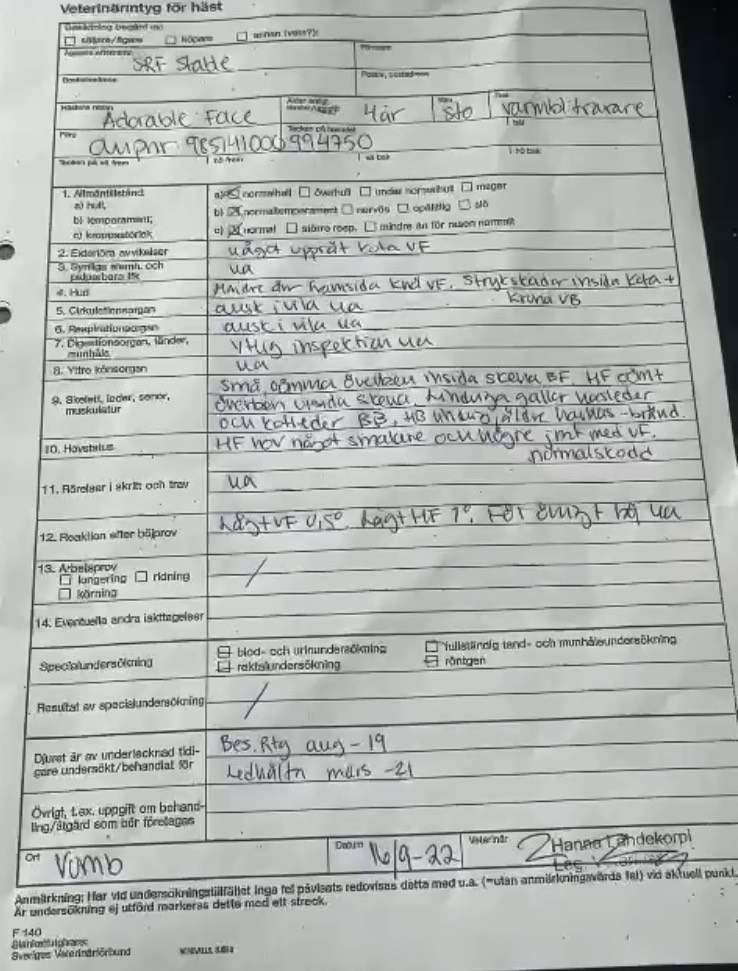 Veterinärintyg för häst
säljare/ägare köpare annan (vem?):
SRF Stalle
Adorable Face 4 år sto varmbl.travare
Färg
985141000994750
1. Allmäntillstånd
a) hull, a) normalhull överhull under normalhull mager
b) temperament; b) normaltemperament nervös opålitlig slö
c) kroppsstorlek c) normal större resp. mindre än för rasen normalt
2. Exteriöra avvikelser något upprät kota VF
3. Synliga slemh. och ua
4. Hud Mindre ärr framsida knä VF. Strykskador insida kota +
krona VB
5. Cirkulationsorgan ausk i vila ua
6. Respirationsorgan ausk i vila ua
7. Digestionsorgan, tänder, munhåla ytlig inspektion ua
8. Yttre könsorgan ua
9. Skelett, leder, senor, muskulatur
små oömma överben insida skena BF. HF oömt
överben skena. Lindriga galler hasleder
och kotleder BB, äldre
10. Hovstatus HF hov något smalare och högre jmf med VF.
normalskodd
11. Rörelser i skritt och trav ua
12. Reaktion efter böjprov Lågt VF 0,5° Lågt HF 1°. För övrigt böj ua
13. Arbetsprov /
longering ridning
körning
14. Eventuella andra iakttagelser
Specialundersökning blod- och urinundersökning fullständig tand- och munhåleundersökning
rektalundersökning röntgen
Resultat av specialundersökning /
Djuret är av undertecknad tidi- Bes. Rtg aug -19
gare undersökt/behandlat för Ledhältn mars -21
Övrigt, t.ex. uppgift om behand-
ling/åtgärd som bör företagas
Ort Vomb Datum 16/9-22 Veterinär Hanna Landekorpi
Anmärkning: Har vid undersökningstillfället inga fel påvisats redovisas detta med u.a. (=utan anmärkningsvärda fel) vid aktuell punkt.
Är undersökning ej utförd markeras detta med ett streck.
F 140
Sveriges Veterinärförbund